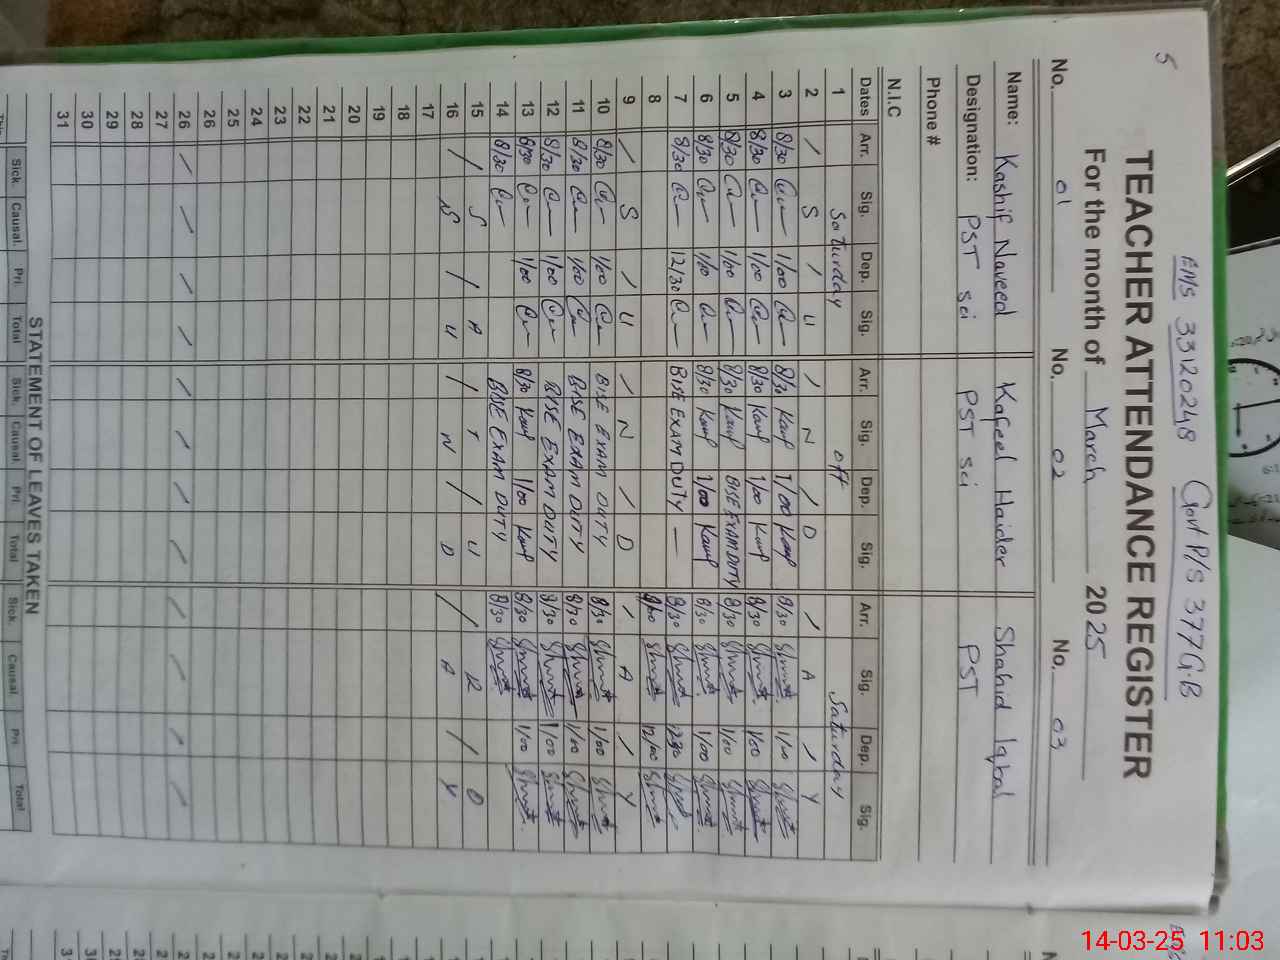 5
EMIS 33120248 Govt P/S 377 G.B
TEACHER ATTENDANCE REGISTER
For the month of March 2025
No. 01 No. 02 No. 03
Name: Kashif Naveed Kafeel Haider Shahid Iqbal
Designation: PST Sci PST Sci PST
Phone #
N.I.C
Dates Arr. Sig. Dep. Sig. Arr. Sig. Dep. Sig. Arr. Sig. Dep. Sig.
1 Saturday off Saturday
2 / S / U / N / D / A / Y
3 8/30 1/00 8/30 1/00 8/30 1/00
4 8/30 1/00 8/30 1/00 8/30 1/00
5 8/30 1/00 8/30 BISE EXAM DUTY 8/30 1/00
6 8/30 1/00 8/30 1/00 8/30 1/00
7 8/30 12/30 BISE EXAM DUTY — 8/30 12/30
8 12/00
9 / S / U / N / D / A / Y
10 8/30 1/00 BISE EXAM DUTY 8/30 1/00
11 8/30 1/00 BISE EXAM DUTY 8/30 1/00
12 8/30 1/00 BISE EXAM DUTY 8/30 1/00
13 8/30 1/00 8/30 1/00 8/30 1/00
14 8/30 BISE EXAM DUTY 8/30
15 S A T U R D
16 / S / U / N / D / A / Y
17
18
19
20
21
22
23
24
25
26
26
27
28
29
30
31
STATEMENT OF LEAVES TAKEN
Sick. Causal. Pri. Total Sick. Causal. Pri. Total Sick. Causal Pri. Total
14-03-25 11:03